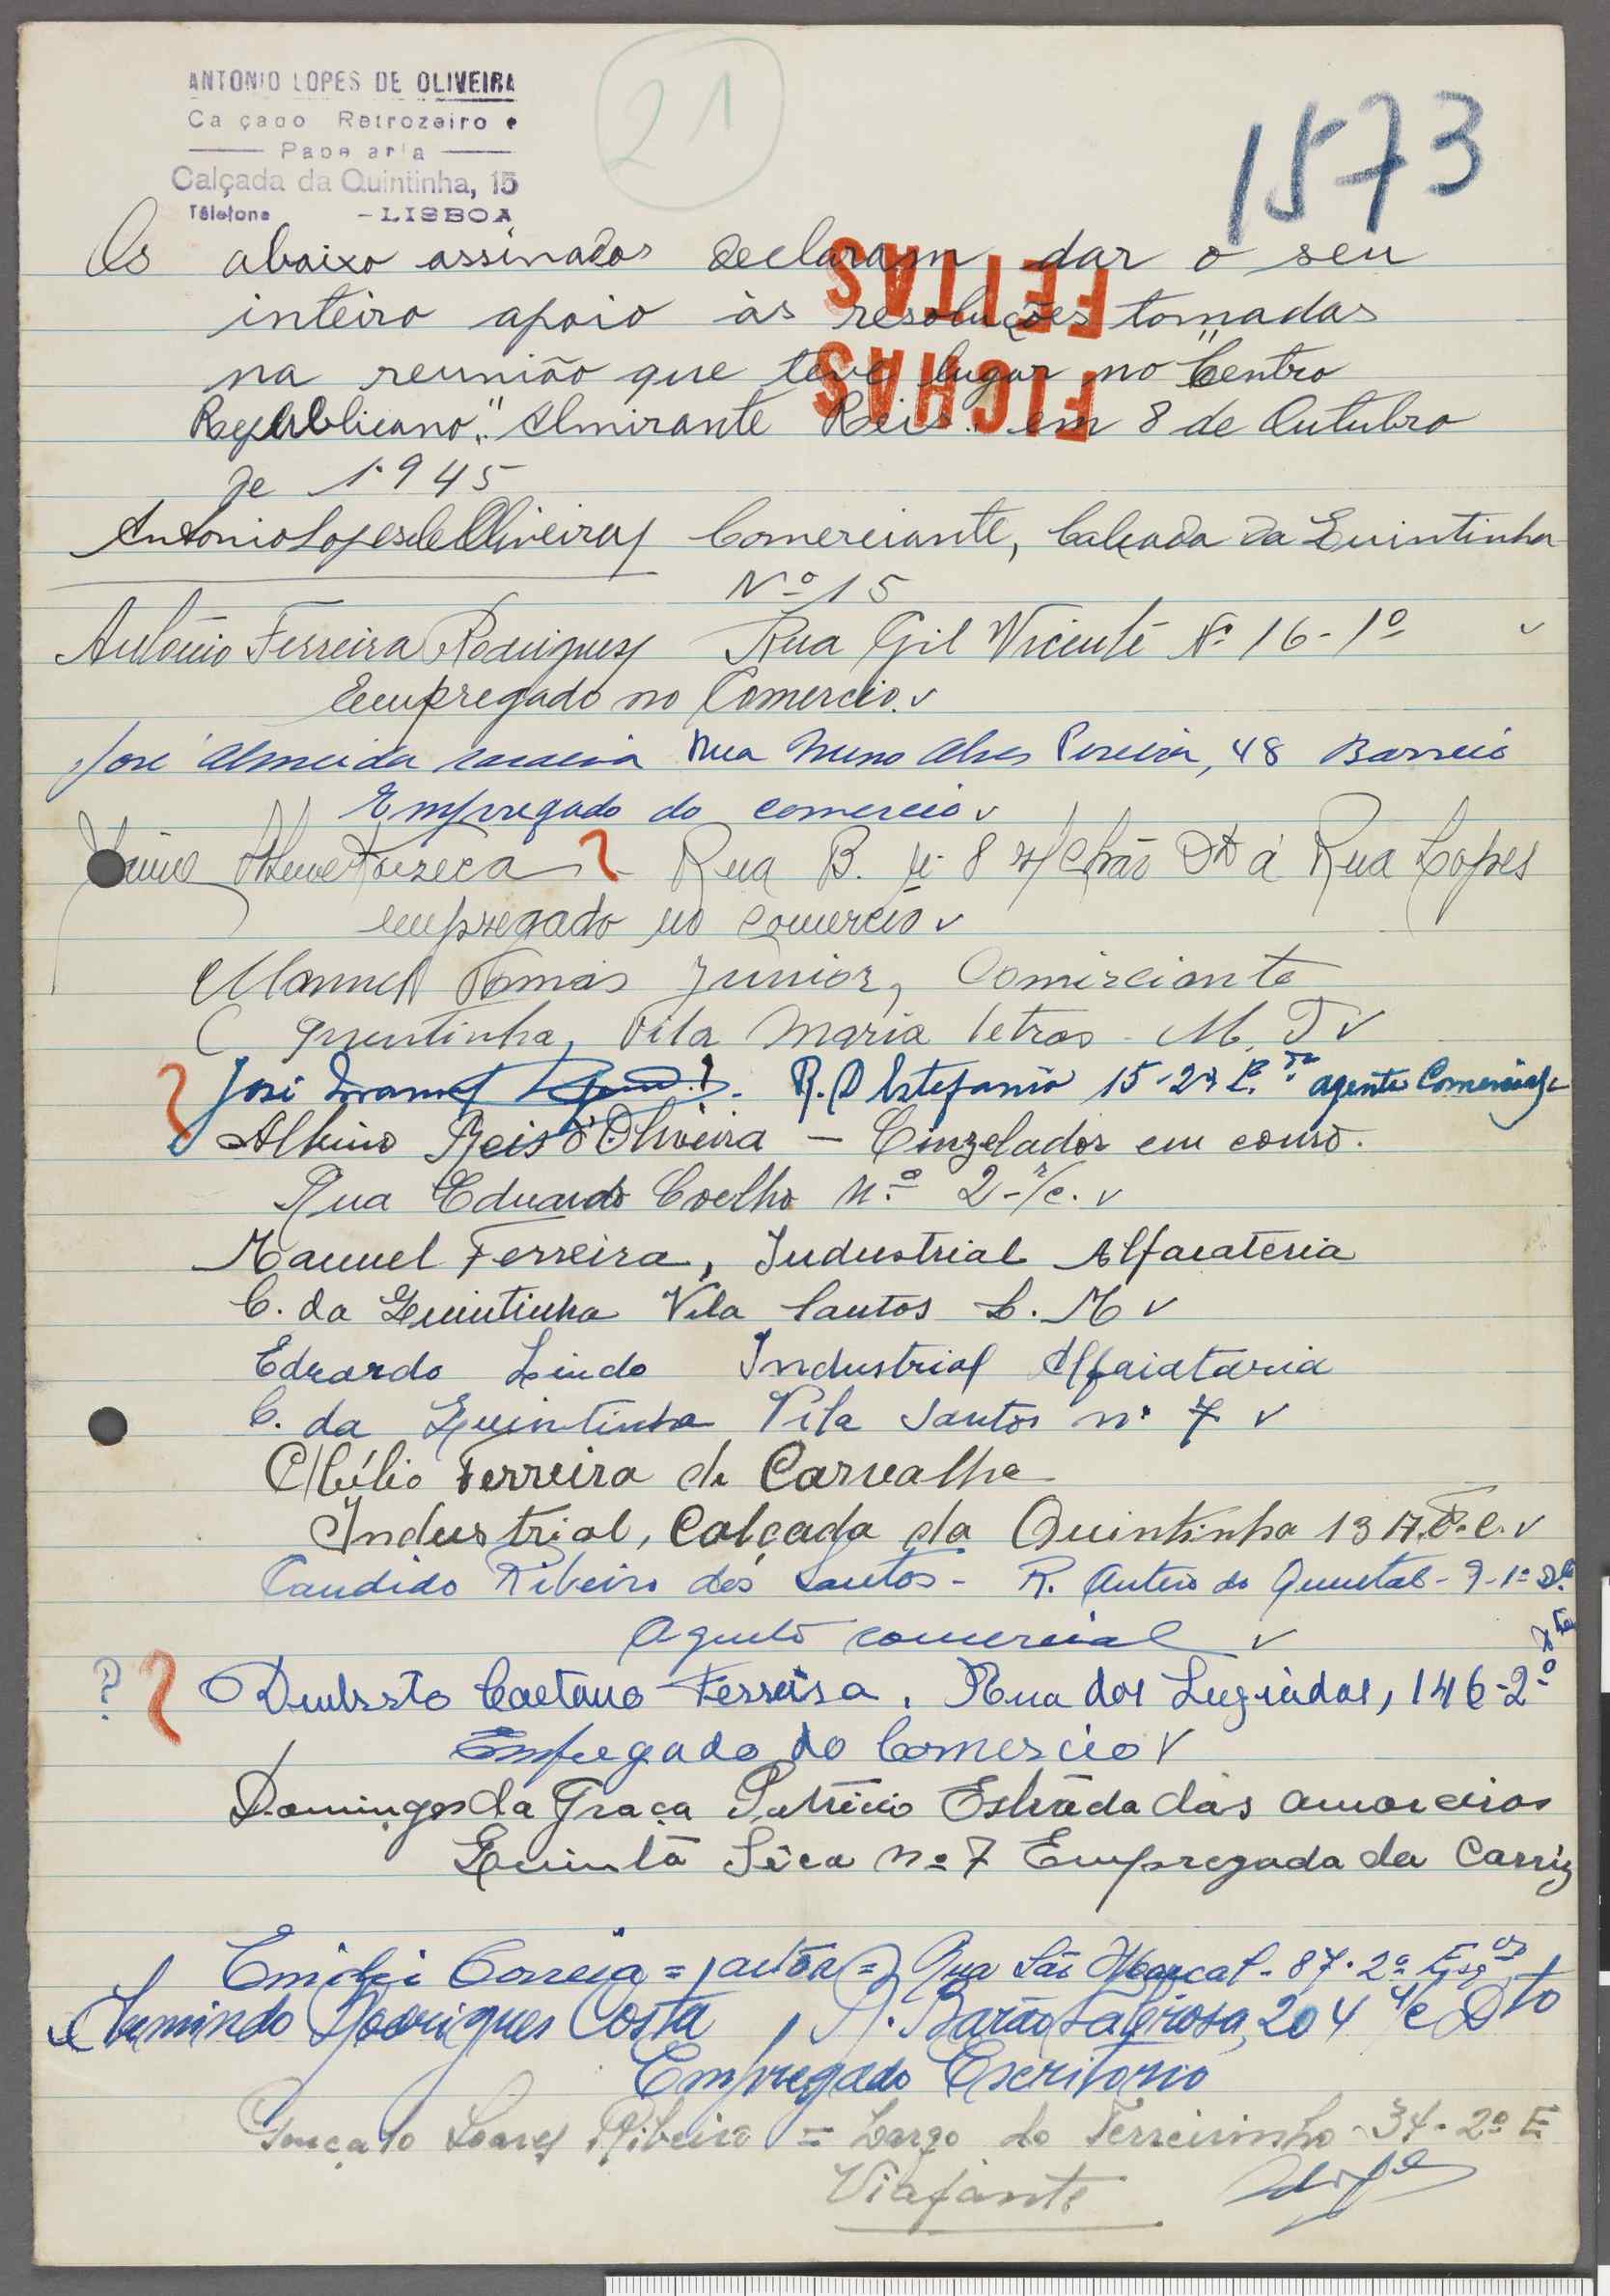 ANTONIO LOPES DE OLIVEIRA
Ca çado Retrozeiro e
Pape aria
Calçada da Quintinha, 15
Télefone - LISBOA
21
1573
FICHAS FEITAS
Os abaixo assinados declaram dar o seu
inteiro apoio às resoluções tomadas
na reunião que teve lugar no "Centro
Republicano" Almirante Reis. em 8 de Outubro
de 1945
Antonio Lopes de Oliveira Comerciante, Calçada da Quintinha
Nº 15
António Ferreira Rodrigues Rua Gil Vicente Nº 16-1º v
Empregado no Comercio. v
José Almeida Rua Nuno Alves Pereira, 48 Barreiro
Empregado do comercio v
Fonseca Rua B. nº 8 r/chão Dto á Rua Lopes
empregado no comercio v
Manuel Tomás Junior, Comirciante
C quentinha, Vila Maria letras M. T v
José R. D Estefania 15-2º agente Comercial
Albino Reis d'Oliveira - Cinzelador em couro.
Rua Eduardo Coelho n.º 2-r/c. v
Manuel Ferreira, Industrial Alfaiateria
C. da Quintinha Vila Santos L. M v
Eduardo Lindo Industrial Alfaiataria
C. da Quintinha Vila Santos nº 7 v
Abílio Ferreira de Carvalho
Industrial, Calçada da Quintinha 13 v
Candido Ribeiro dos Santos - R. Antero do Quental - 9-1º
Agente comercial v
? Caetano Ferreira. Rua dos Luziadas, 146-2º
Empregado do Comercio v
Domingos da Graça Patricio Estrada das amoreiras
Quinta Sêca nº 7 Empregado da Carris
Correia = Rua São Marçal - 87-2º Esq
Armindo Rodrigues Costa, R. Barão Sabrosa, 204 r/c Dto
Empregado Escritorio
Gonçalo Soares Ribeiro = Largo do Terreirinho - 34-2º E
Viajante